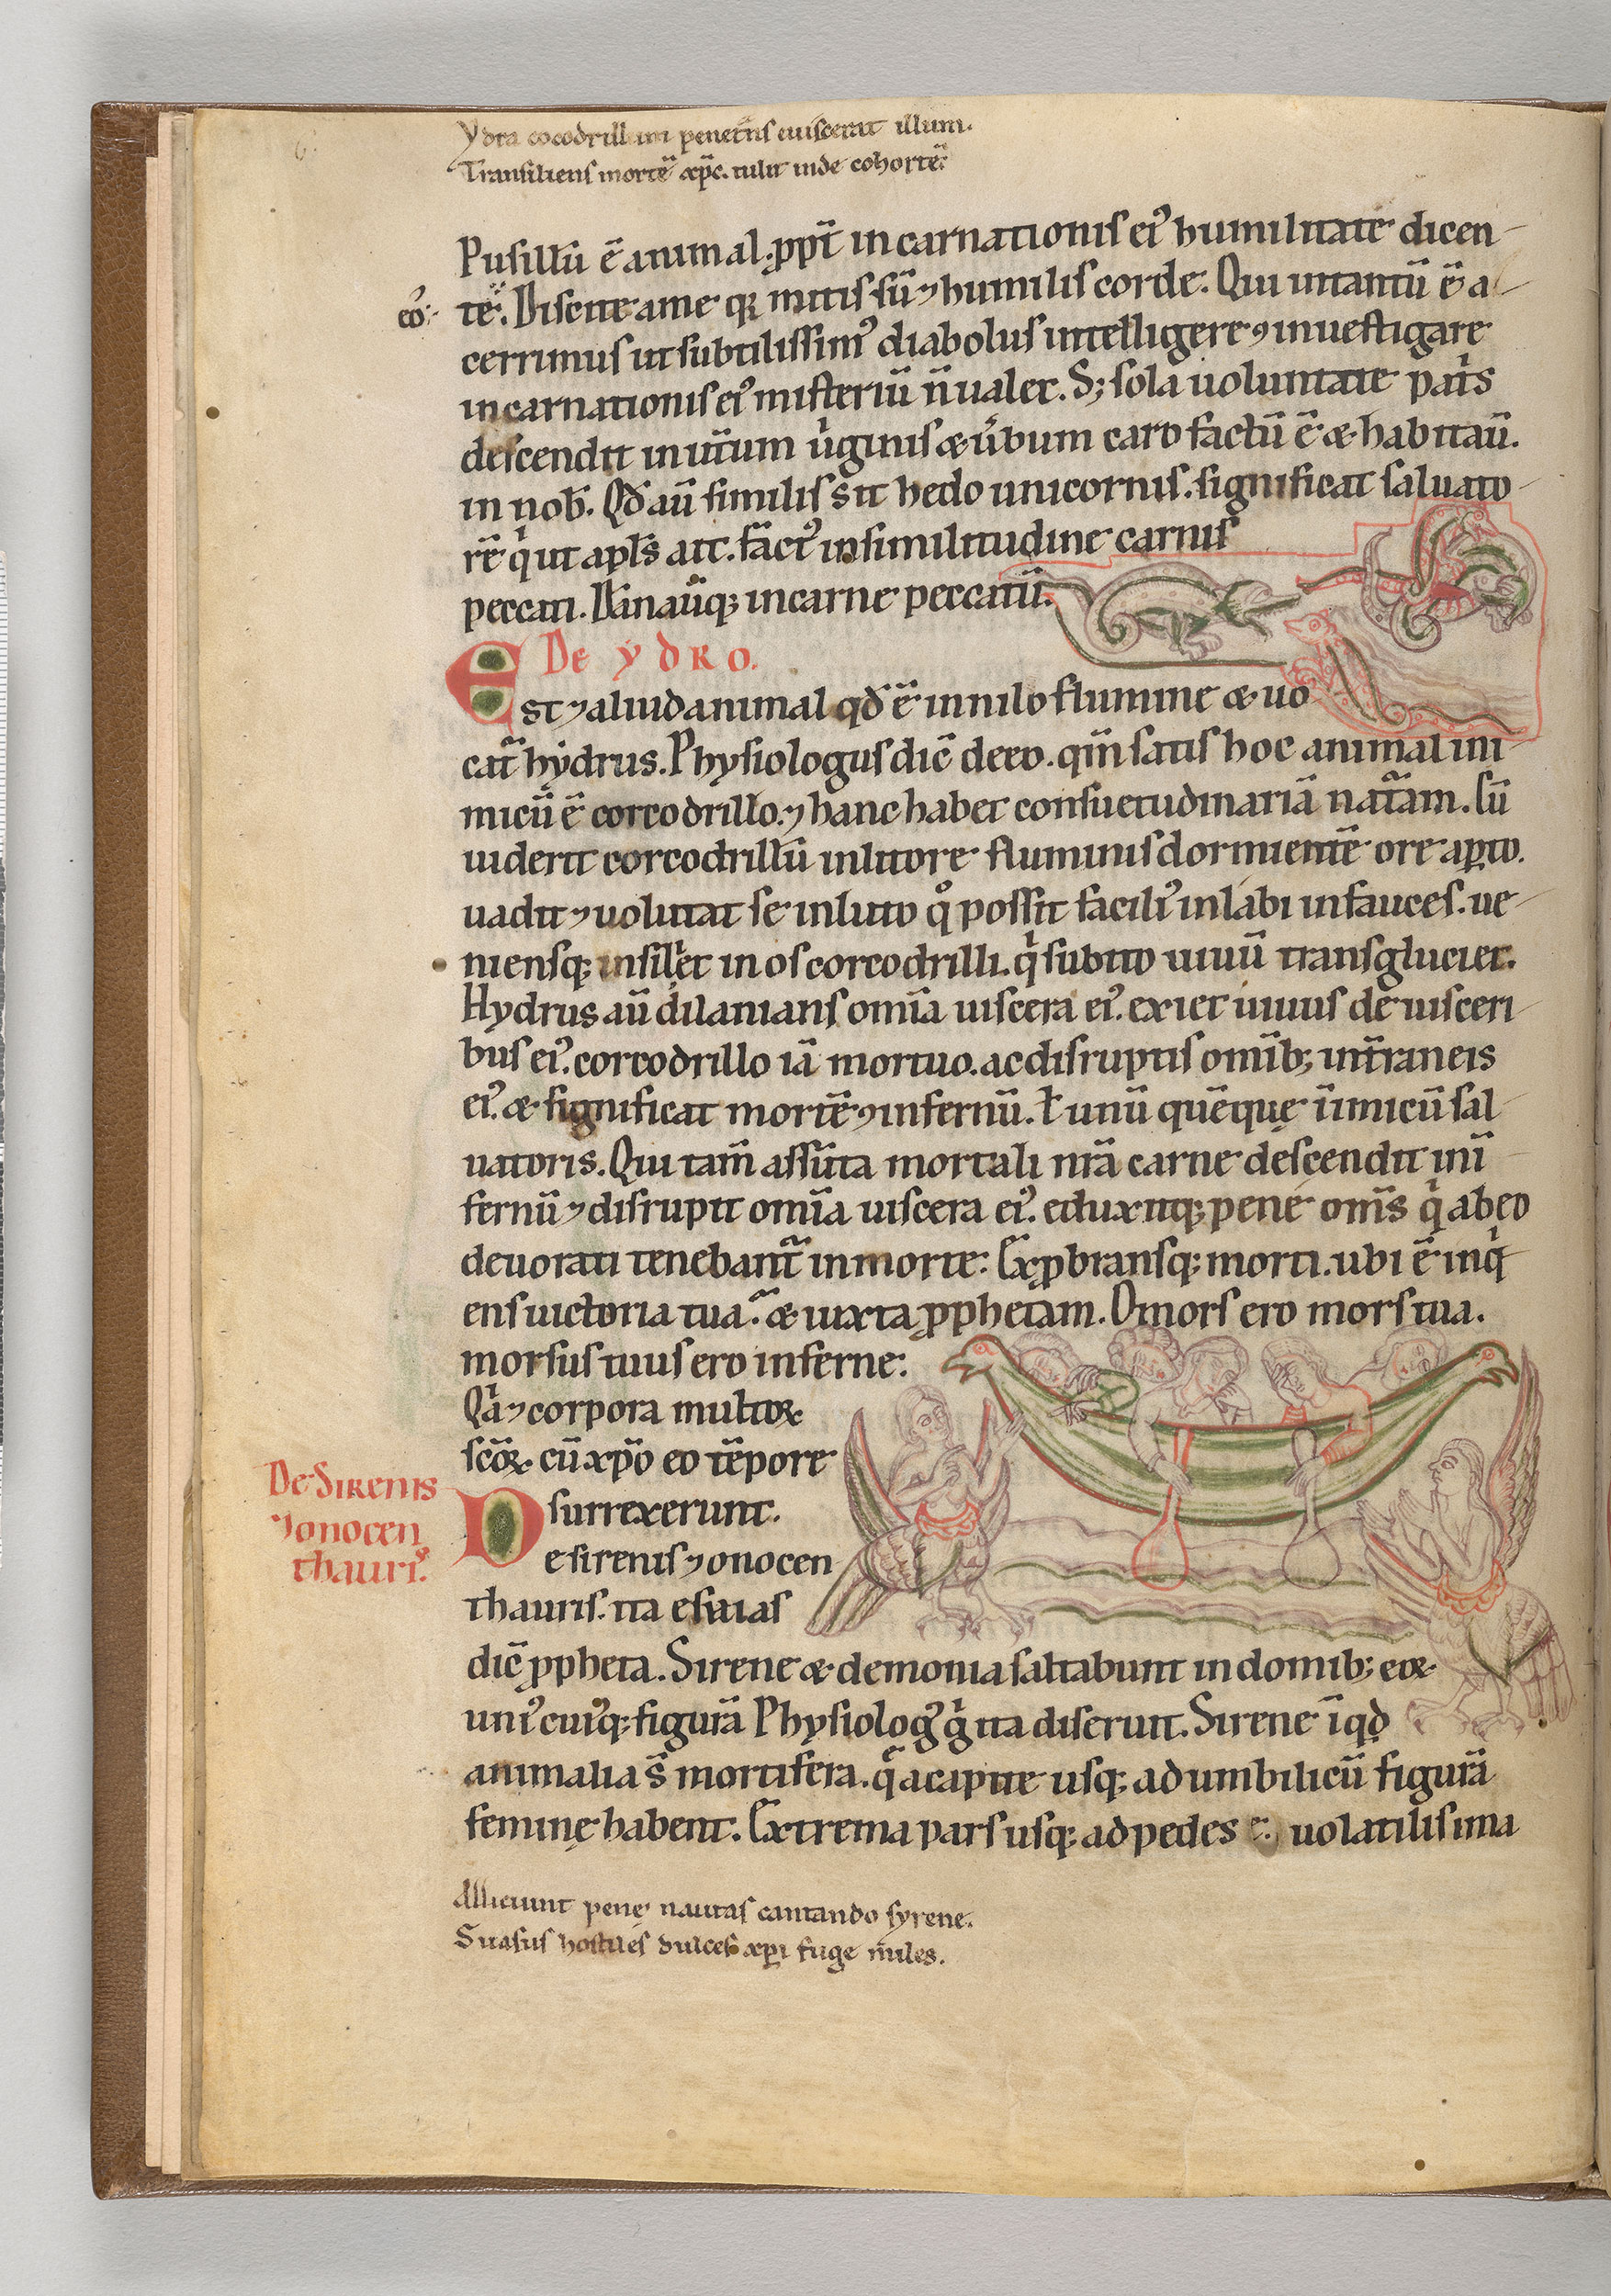 Ydra cocodrillum penetrās euiscerat illum.
Transiliens mortē xp̄c. tulit inde cohortē.
Pusillū ē animal. ꝓpt̄ incarnationis ei᾽ humilitatē dicen
eo᾽. tē. Discite a me qꝛ mitis sū ⁊ humilis corde. Qui intantū ē a
cerrimus ut subtilissim᾽ diabolus intelligere ⁊ inuestigare
incarnationis ei᾽ misteriū n̄ ualet. S; sola uoluntate pat̄s
descendit in ut̄um uͥginis & uͥbum caro factū ē & habitau̅.
in nob̄. Qd̄ au̅ similis sit hedo unicornis. significat saluato
rē qͥ ut apl̄s ait. fact᾽ in similitudine carnis
peccati. Dānauͥtq; in carne peccatū.
De ydro.
Est ⁊ aliud animal qd̄ ē in nilo flumine & uo
cat̄ hydrus. Physiologus dic̄ de eo. qm̄ satis hoc animal ini
micū ē corcodrillo. ⁊ hanc habet consuetudinariā nat̄am. Cū
uiderit corcodrillū in littore fluminis dormientē ore aꝑto.
uadit ⁊ uolutat se in luto qͦ possit facili᾽ inlabi in fauces. ue
niensq; insil̄et in os corcodrilli. qͥ subito uiuū transgluciet.
Hydrus au̅ dilanians om̄ia uiscera ei᾽. exiet uiuus de uisceri
bus ei᾽. corcodrillo iā mortuo. ac disruptis om̄ib; int̄raneis
ei᾽. & significat mortē ⁊ infernū. ł unū quēque inimicū sal
uatoris. Qui tam̄ assūta mortali nr̄a carne descendit in
fernū ⁊ disrupit om̄ia uiscera ei᾽. eduxitq; pene om̄s qͥ ab eo
deuorati tenebant̄ in morte. Exꝓbransq; morti. ubi ē inqͥ
ens uictoria tua. & iuxta ꝓphetam. O mors ero mors tua.
morsus tuus ero inferne.
Qͥa ⁊ corpora multoꝝ
sc̄oꝝ cū xp̄o eo tēpore
surrexerunt.
De Sirenis
⁊ onocen
thauris.
De sirenis ⁊ onocen
thauris. ita esaias
dic̄ ꝓpheta. Sirene & demonia saltabunt in domib; eoꝝ
uni᾽cui᾽q; figurā Physiolog᾽ gͥ ita diserut. Sirene īqd
animalia s̄ mortifera. q̄ a capite usq; ad umbilicū figurā
feminę habent. Extrema pars usq; ad pedes ē. uolatilis ima
Alliciunt pene nautas cantando syrene.
Suasus hostiles dulces xp̄i fuge miles.